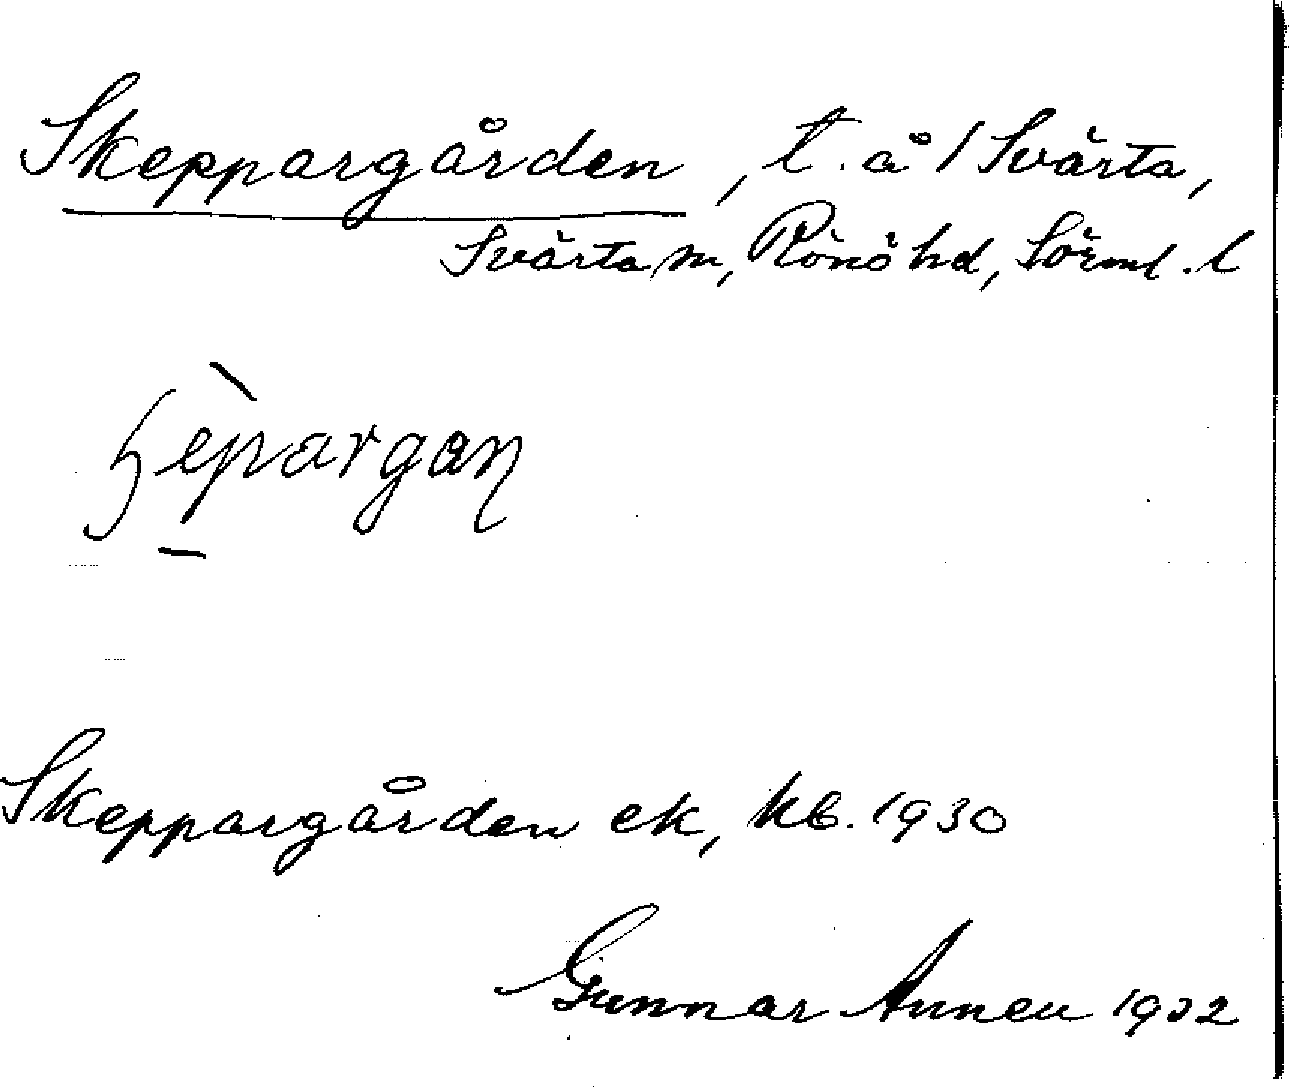 Skeppargården, t. å / Svärta,
Svärta sn, Rönö hd, Sörml. l
Skeppargården ek, kb. 1930
Gunnar Anneu 1932